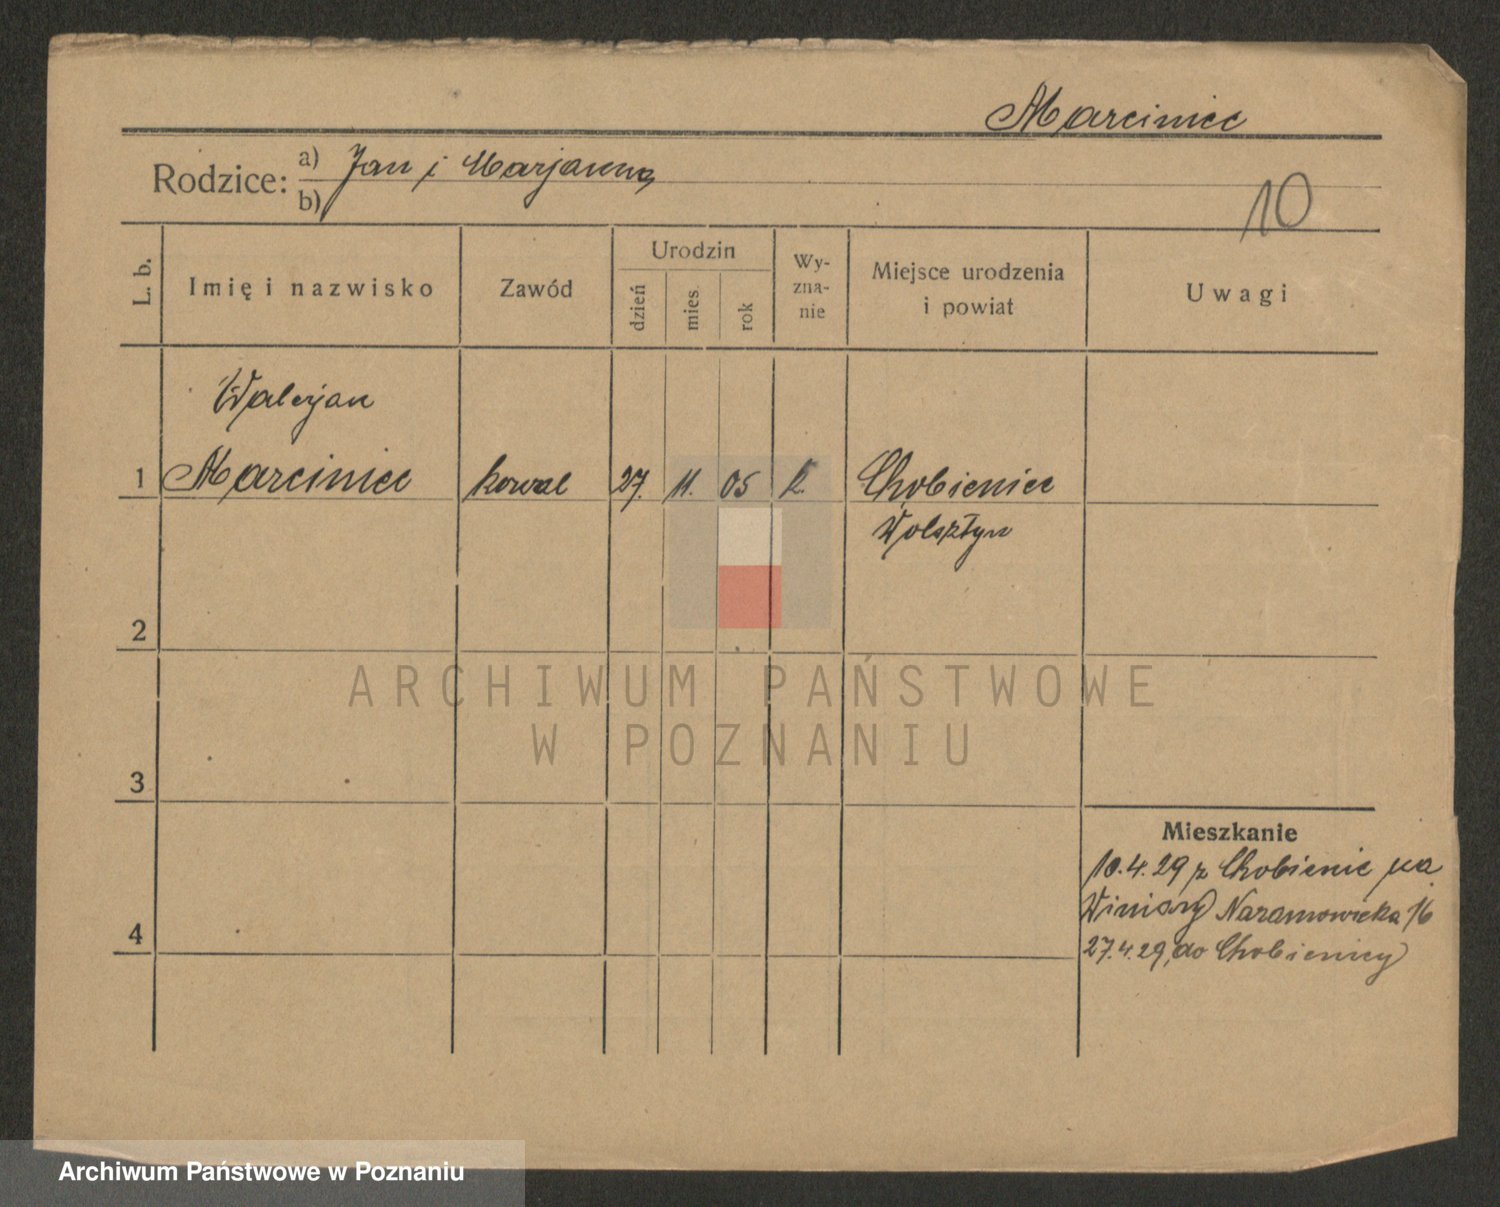 Marciniec
Rodzice: a) Jan i Marjanna
b)
10
L. b.
Imię i nazwisko
Zawód
Urodzin
dzień
mies.
rok
Wy-
zna-
nie
Miejsce urodzenia
i powiat
Uwagi
Walerjan
1 Marciniec kowal 27. 11. 05 k. Chobienice
Wolsztyn
2
ARCHIWUM PAŃSTWOWE
W POZNANIU
3
Mieszkanie
10.4.29 z Chobienic na
Winiary Naramowicka 16
4
27.4.29 do Chobienicy
Archiwum Państwowe w Poznaniu